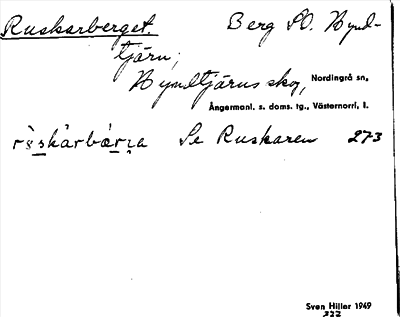 Ruskarberget. Berg SO. Nynd-
tjärn,
Nyndtjärns skog, Nordingrå sn,
Ångermanl. s. doms. tg., Västernorrl. l.
Se Ruskaren 273
Sven Hiller 1949
222